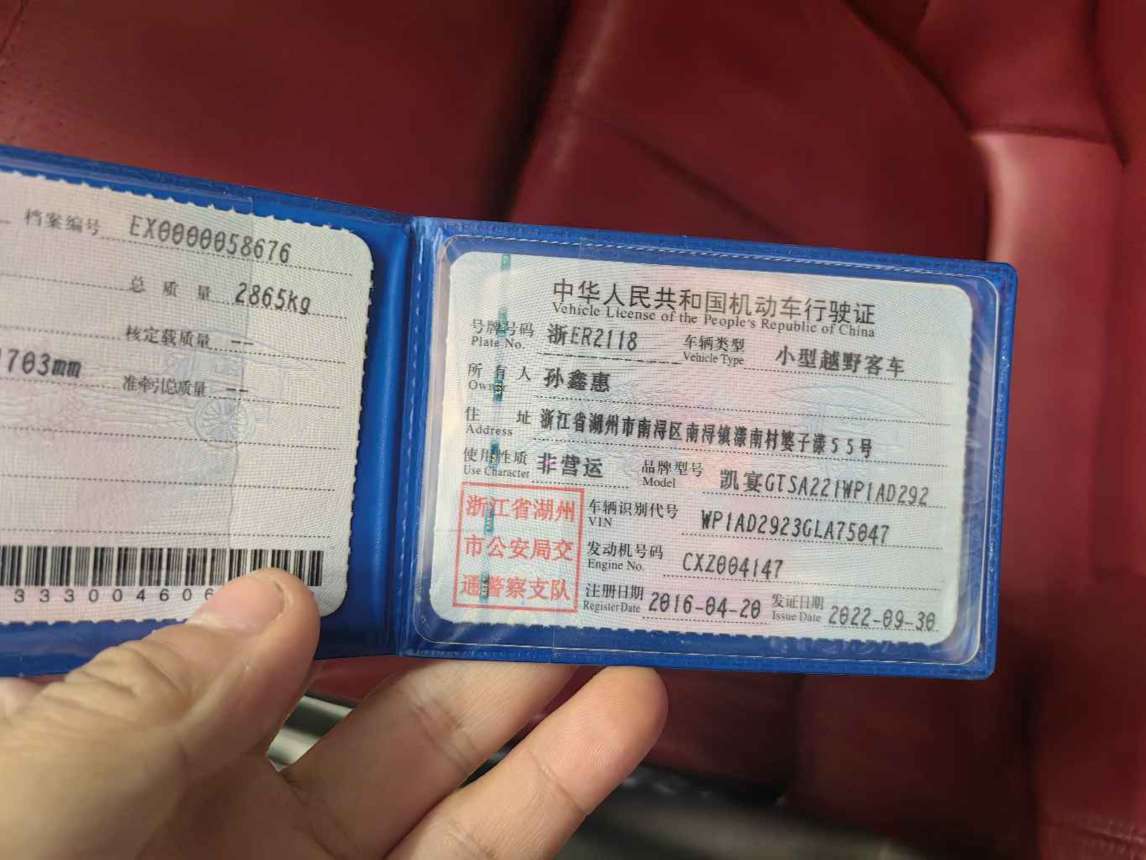 档案编号 EX0000058676
总质量 2865kg
核定载质量 --
703mm 准牵引总质量 --
中华人民共和国机动车行驶证
Vehicle License of the People's Republic of China
号牌号码 浙ER2118 车辆类型 小型越野客车
Plate No. Vehicle Type
所有人 孙鑫惠
Owner
住址 浙江省湖州市南浔区南浔镇漾南村婆子漾55号
Address
使用性质 非营运 品牌型号 凯宴GTSA221WP1AD292
Use Character Model
浙江省湖州
市公安局交
通警察支队
车辆识别代号 WP1AD2923GLA75047
VIN
发动机号码 CXZ004147
Engine No.
注册日期 2016-04-20 发证日期 2022-09-30
Register Date Issue Date